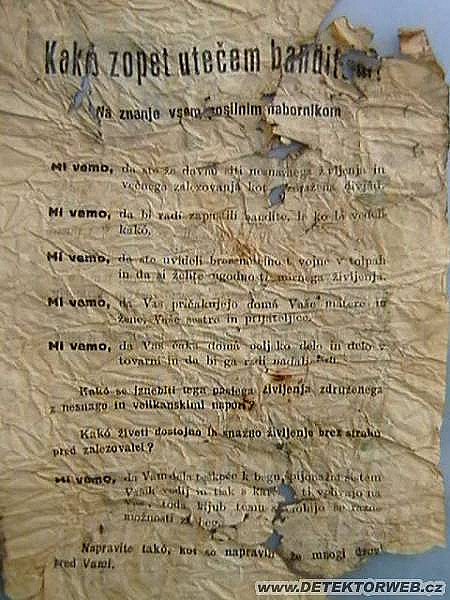 Kakó zopet utečem banditom?
Na znanje vsem posilnim nabornikom
Mi vemo, da ste že davno siti neznavnega življenja in
večnega zalezovanja kot divjad.
Mi vemo, da bi radi zapustili bandite, le ko bi vedeli
kakó.
Mi vemo, da ste uvideli bresmiselnost vojne v tolpah
in da si želite ugodnosti mirnega življenja.
Mi vemo, da Vas pričakujejo domá Vaše matere in
žene, Vaše sestre in prijateljice.
Mi vemo, da Vas čaka domá poljsko delo in delo v
tovarni in da bi ga radi nadaljevali.
Kakó se iznebiti tega pasjega življenja združenega
z nesnago in velikanskimi napori?
Kakó živeti dostojno in snažno življenje brez strahu
pred zalezovalci?
Mi vemo, da Vam dela težkoče k begu, špijonažni sistem
Vaših vodij in tisk s katerim ti vplivajo na
Vas, toda kljub temu se dobijo še razne
možnosti za beg.
Napravite takó, kot so napravili že mnogi drugi
pred Vami.
WWW.DETEKTORWEB.CZ